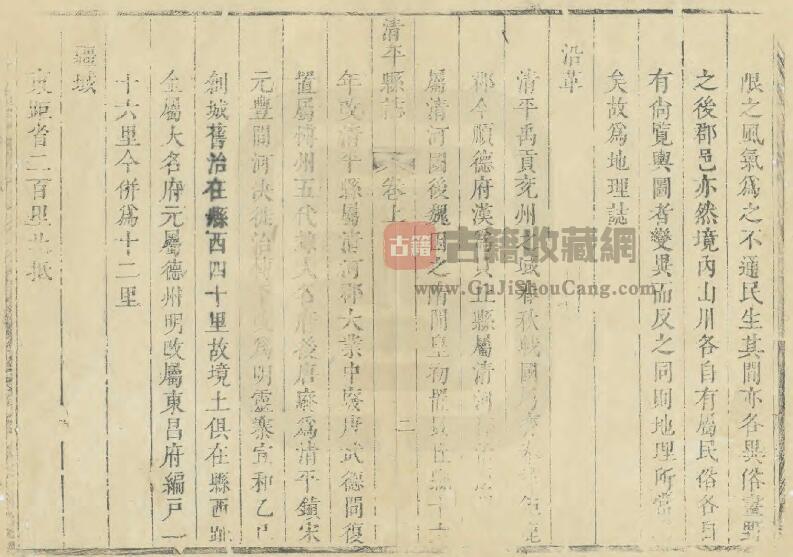 限之風氣為之不通民生其間亦各異俗畫野
之後郡邑亦然境內山川各自有屬民俗各自
有尚覽輿圖者變異而反之同則地理所當
矣故為地理誌
沿革
清平禹貢兗州之域春秋戰國
郡今順德府漢為貝丘縣屬清河
屬清河國後魏因之隋開皇初罷貝丘縣十六
清平縣誌
卷上
二
年改清平縣屬清河郡大業中廢唐武德間復
置屬博州五代隸大名府後唐廢為清平鎮宋
元豐間河決徙治明靈寨宣和乙巳
創城舊治在縣西四十里故境土俱在縣西
金屬大名府元屬德州明改屬東昌府編戶一
十六里今併為十二里
疆域
東距省二百里北抵
古籍
古籍收藏網
www.GuJiShouCang.com